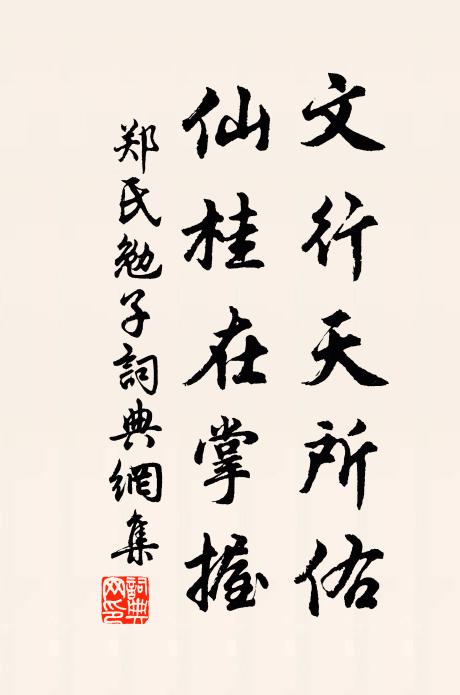 文行天所佑
仙桂在掌握
郑氏勉子詞典網集
詞典网印